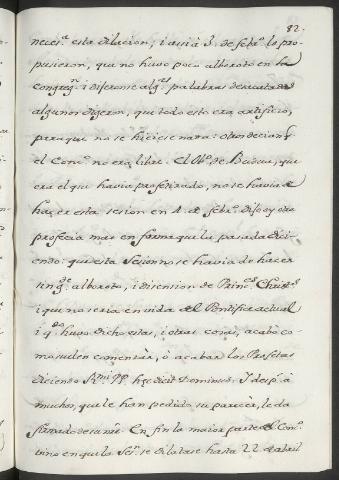 82.
neces.ᵃ esta dilacion, i aun à 3. de febr.º lo pro-
pusieron, que no huvo poco alboroto en la
congreg.ⁿ i dixeronse alg.ᵃˢ palabras
algunos digeron, que todo esto era artificio,
para que no se hiciese nara: otros decian q̃
el Conc.º no era libre. El Ob.º de Budua, que
era el que havia profetizado, no se havia de
hacer esta sesion en 4. de febr.º dixo y otra
profecia mas en forma que la pasada dici-
endo: que esta Sesion no se havia de hacer
sin g.ᵈᵉ alboroto, i disension de Princ.ᵉˢ Christ.ˢ
i que no seria en vida del Pontifice actual
i q.ᵈº huvo dicho estas, i otras cosas, acabò co-
mo suelen comenzar, ò acabar los Profetas
diciendo R.ᵐⁱ PP. hęc dicit Dominus. I desp.ˢ à
muchos, que le han pedido su parecèr, le da
firmado de su nre. En fin la maior parte del Conc.º
vino en que la Ses.ⁿ se dilatase hasta 22 de abril